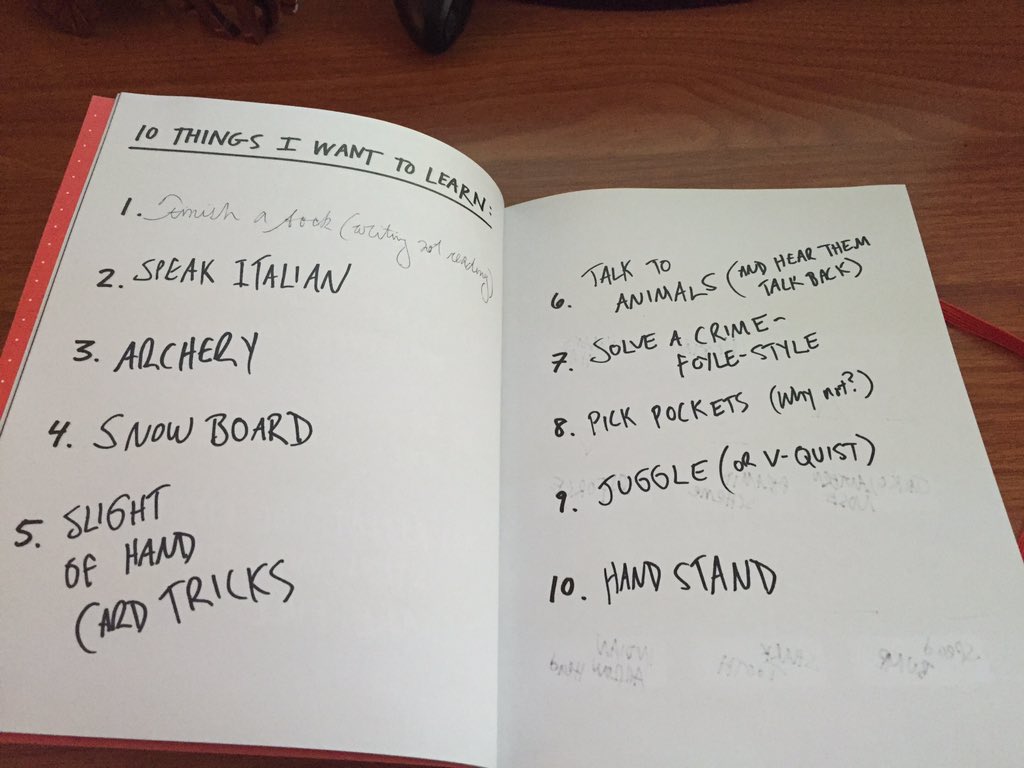 10 THINGS I WANT TO LEARN:
1. Finish a book (writing not reading)
2. SPEAK ITALIAN
3. ARCHERY
4. SNOW BOARD
5. SLIGHT
OF HAND
CARD TRICKS
6. TALK TO
ANIMALS (AND HEAR THEM
TALK BACK)
7. SOLVE A CRIME-
FOYLE-STYLE
8. PICK POCKETS (Why not?)
9. JUGGLE (OR V-QUIST)
10. HAND STAND